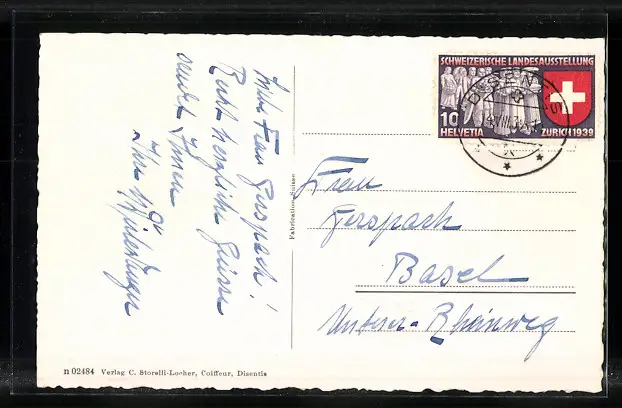 SCHWEIZERISCHE LANDESAUSSTELLUNG
10
HELVETIA ZÜRICH 1939
DISENTIS
Liebe Frau Gerspach!
Recht herzliche Grüsse
sendet Ihnen
Ihre
Frau
Gerspach
Basel
Unterer-Rheinweg
Fabrication Suisse
n 02484 Verlag C. Storelli-Locher, Coiffeur, Disentis